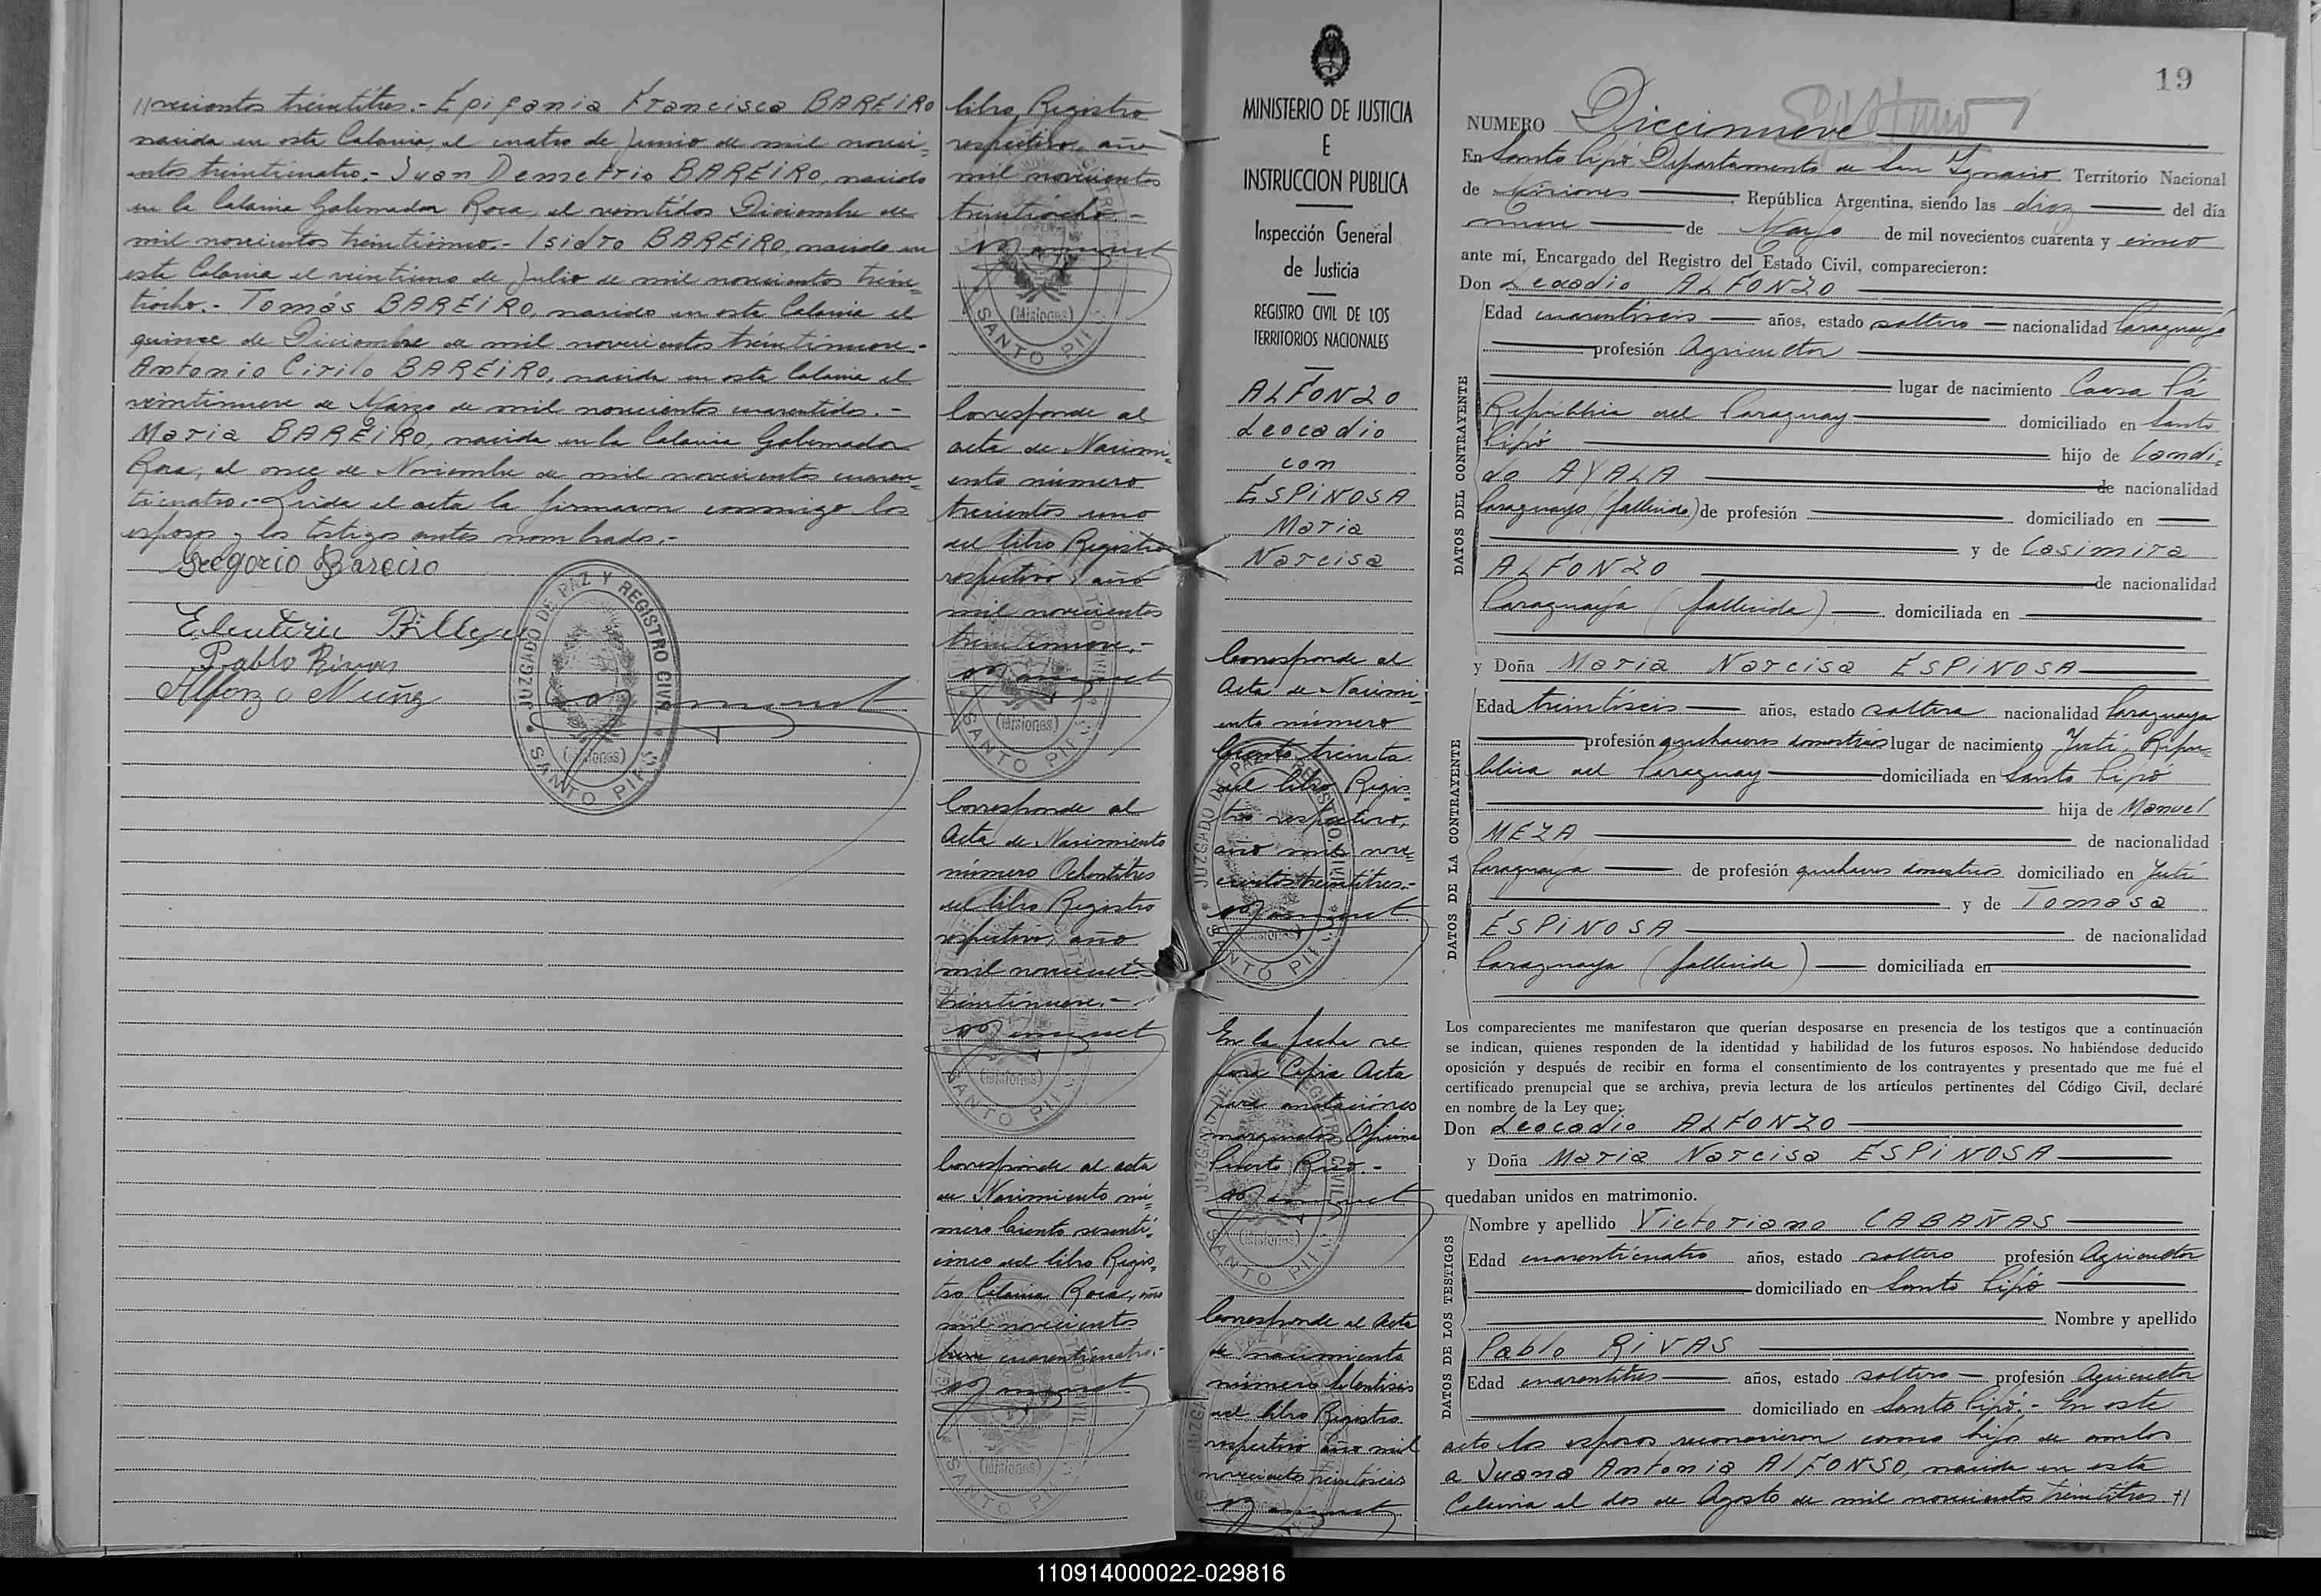 //vecientos treintitres.- Epifania Francisca BAREIRO
nacida en esta Colonia, el cuatro de Junio de mil noveci-
entos treinticuatro.- Juan Demetrio BAREIRO, nacido
en la Colonia Gobernador Roca, el veintidos Diciembre de
mil novecientos treinticinco.- Isidro BAREIRO, nacido en
esta Colonia el veintiuno de Julio de mil novecientos trein-
tiocho.- Tomás BAREIRO, nacido en esta Colonia el
quince de Diciembre de mil novecientos treintinueve.-
Antonio Cirilo BAREIRO, nacido en esta Colonia el
veintinueve de Marzo de mil novecientos cuarentidos.-
Maria BAREIRO, nacida en la Colonia Gobernador
Roca, el once de Noviembre de mil novecientos cuaren-
ticuatro.- Leida el acta la firmaron conmigo los
esposos y los testigos antes nombrado.-
Gregorio Bareiro
Pablo Rivas
Alfonzo Muñz
JUZGADO DE PAZ Y REGISTRO CIVIL
(Misiones)
SANTO PIPÓ
libro Registro
respectivo, año
mil novecientos
treintiocho.-
(Misiones)
SANTO PIPÓ
Corresponde al
acta de Nacimi-
ento número
trecientos uno
del libro Registro
respectivo, año
mil novecientos
treintinueve.-
(Misiones)
SANTO PIPÓ
Corresponde al
Acta de Nacimiento
número Ochentitres
del libro Registro
respectivo, año
mil noveciento
treintinueve.-
(Misiones)
SANTO PIPÓ
Corresponde al acta
de Nacimiento nú-
mero Ciento sesenti-
cinco del libro Regis-
tro Colonia Roca, año
mil novecientos
cuarenticuatro.-
(Misiones)
SANTO PIPÓ
MINISTERIO DE JUSTICIA
E
INSTRUCCION PUBLICA
Inspección General
de Justicia
REGISTRO CIVIL DE LOS
TERRITORIOS NACIONALES
ALFONZO
Leocadio
con
ESPINOSA
Maria
Narcisa
Corresponde al
Acta de Nacimi-
ento número
Ciento treinta
del libro Regis-
tro respectivo,
año mil nove-
cientos treintitres.-
JUZGADO DE PAZ Y REGISTRO CIVIL
(Misiones)
SANTO PIPÓ
En la fecha se
pasa Copia Acta
para anotaciones
marginales Oficina
Puerto Rico.-
(Misiones)
SANTO PIPÓ
Corresponde al Acta
de nacimiento
número
del libro Registro
respectivo año mil
novecientos treintiseis
19
NUMERO Diecinueve
En Santo Pipó, Departamento de San Ignacio Territorio Nacional
de Misiones, República Argentina, siendo las diez del día
nueve de Mayo de mil novecientos cuarenta y cinco
ante mí, Encargado del Registro del Estado Civil, comparecieron:
Don Leocadio ALFONZO
DATOS DEL CONTRAYENTE
Edad cuarentiseis años, estado soltero nacionalidad Paraguayo
profesión Agricultor
lugar de nacimiento Caasa Pá
República del Paraguay domiciliado en Santo
Pipó hijo de Candi-
do AYALA de nacionalidad
Paraguayo (fallecido) de profesión domiciliado en
y de Casimira
ALFONZO de nacionalidad
Paraguaya (fallecida) domiciliada en
y Doña Maria Narcisa ESPINOSA
DATOS DE LA CONTRAYENTE
Edad treintiseis años, estado soltera nacionalidad Paraguaya
profesión quehaceres domesticos lugar de nacimiento Yuti, Repu-
blica del Paraguay domiciliada en Santo Pipó
hija de Manuel
MEZA de nacionalidad
Paraguaya de profesión quehaceres domesticos domiciliado en Yuti
y de Tomasa
ESPINOSA de nacionalidad
Paraguaya (fallecida) domiciliada en
Los comparecientes me manifestaron que querían desposarse en presencia de los testigos que a continuación
se indican, quienes responden de la identidad y habilidad de los futuros esposos. No habiéndose deducido
oposición y después de recibir en forma el consentimiento de los contrayentes y presentado que me fué el
certificado prenupcial que se archiva, previa lectura de los artículos pertinentes del Código Civil, declaré
en nombre de la Ley que:
Don Leocadio ALFONZO
y Doña Maria Narcisa ESPINOSA
quedaban unidos en matrimonio.
DATOS DE LOS TESTIGOS
Nombre y apellido Victoriano CABAÑAS
Edad cuarenticuatro años, estado soltero profesión Agricultor
domiciliado en Santo Pipó
Nombre y apellido
Pablo RIVAS
Edad cuarentitres años, estado soltero profesión Agricultor
domiciliado en Santo Pipó.- En este
acto los esposos reconocieron como hijo de ambos
a Juana Antonia AlFONSO, nacida en esta
Colonia el dos de Agosto de mil novecientos treintitres //
110914000022-029816